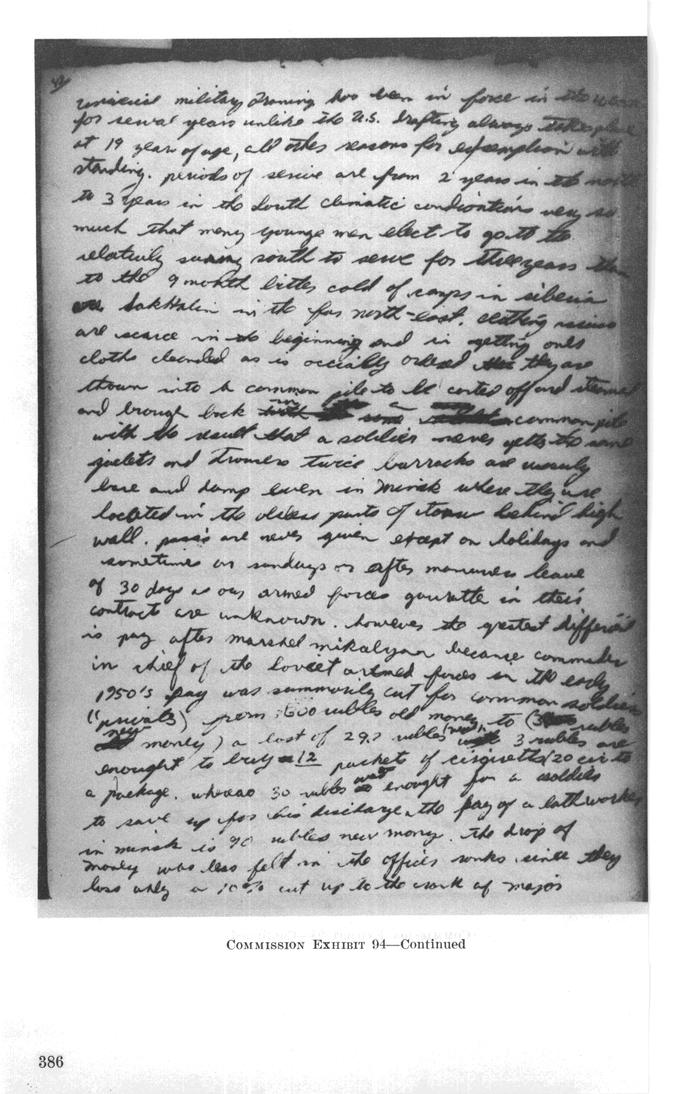 military training has been in force in the
for several years unlike the U.S. drafting always takes place
at 19 year of age, all other reasons for exemption with
standing. periods of service are from 2 years in the north
to 3 years in the South climatic condiontions vary so
much that many younge men elect to go to the
relativly sunny south to serve for three years than
to the 9 month bitter cold of camps in siberia
Sakhalin in the far north-east. clothing
are scarce in the beginning and in getting only
cloths cleaned as is ordered they are
thown into a common pile to be carted off and steamed
and brough back in a common pile
with the result that a soldier never gets the same
jackets and trousers twice barracks are
bare and damp even in Minsk where they are
located in the oldess parts of town behind high
wall. pass's are never given except on holidays and
sometimes on sundays or after manuvers leave
of 30 days as our armed forces in their
contracts are unknown. however the greatest
is pay after marshel became commader
in chief of the Soviet armed forces in the early
1950's pay was cut for common soldiers
("privats) from rubles old money, to (3 rubles
new money) a lost of 29.7 rubles (new). 3 rubles are
enought to buy 12 packets of (20 cir to
a package. whereas 30 rubles was enought for a soldier
to save up for his discharge. the pay of a lathworker
in minsk is 90 rubles new money. the drop of
money was less felt in the officer ranks since they
loss only a 10% cut up to the rank of major
COMMISSION EXHIBIT 94—Continued
386